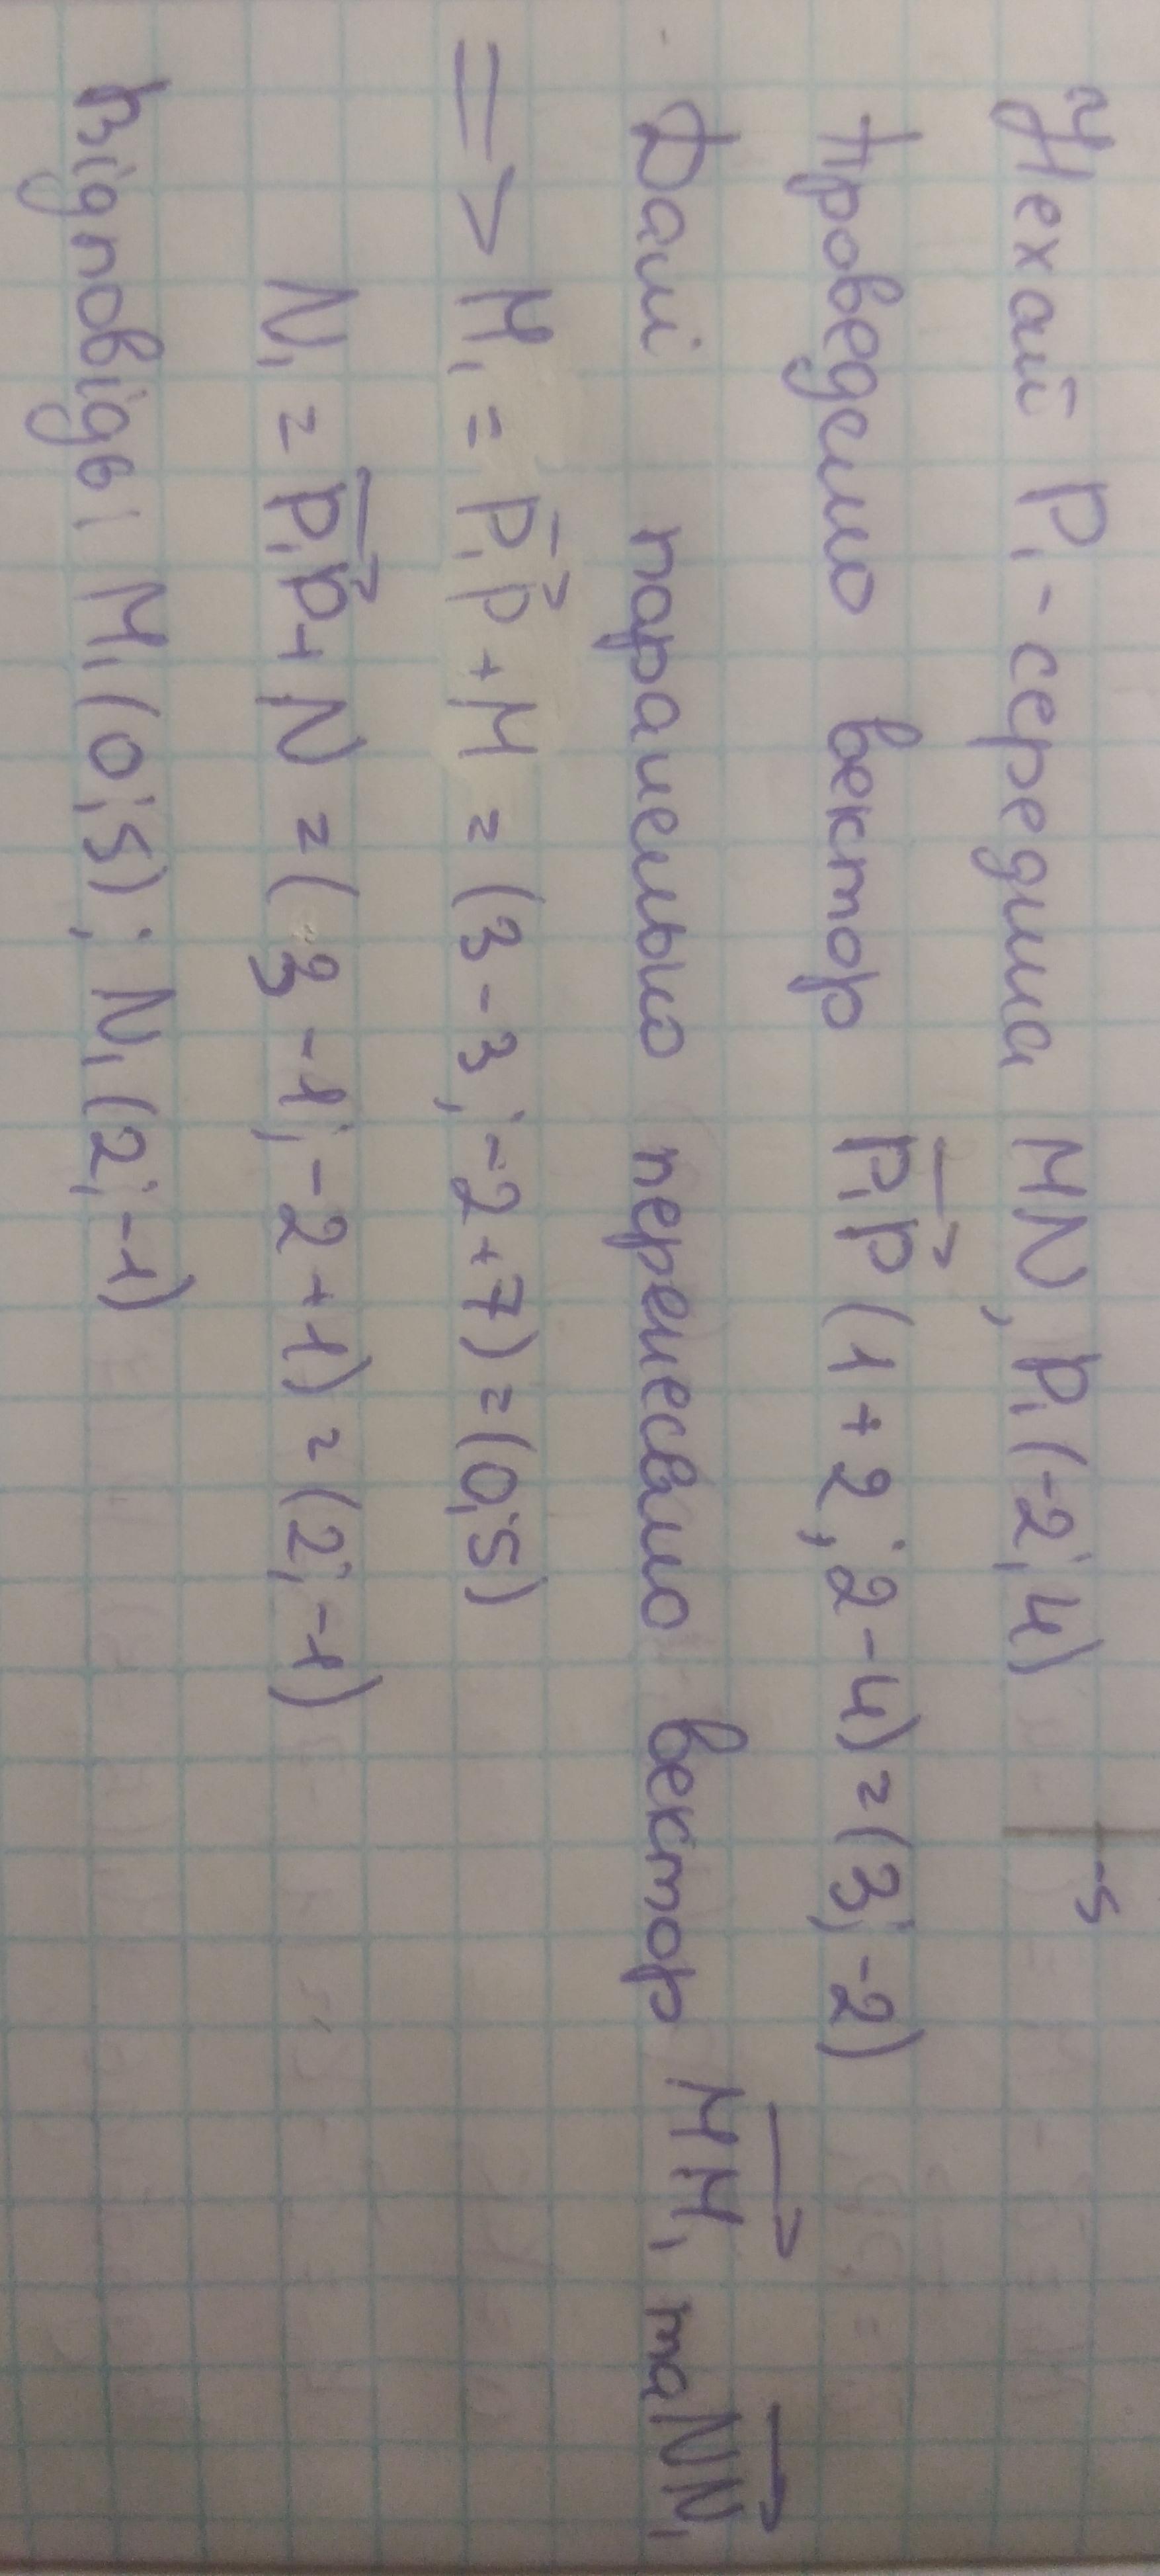 -5
Нехай P₁ - середина MN, P₁(-2; 4)
Проведемо вектор P₁P⃗ (1+2; 2-4) = (3; -2)
Далі паралельно перенесемо вектор MM₁⃗ та NN₁⃗
=> M₁ = P₁P⃗ + M = (3-3; -2+7) = (0; 5)
N₁ = P₁P⃗ + N = (3-1; -2+1) = (2; -1)
Відповідь: M₁(0; 5); N₁(2; -1)